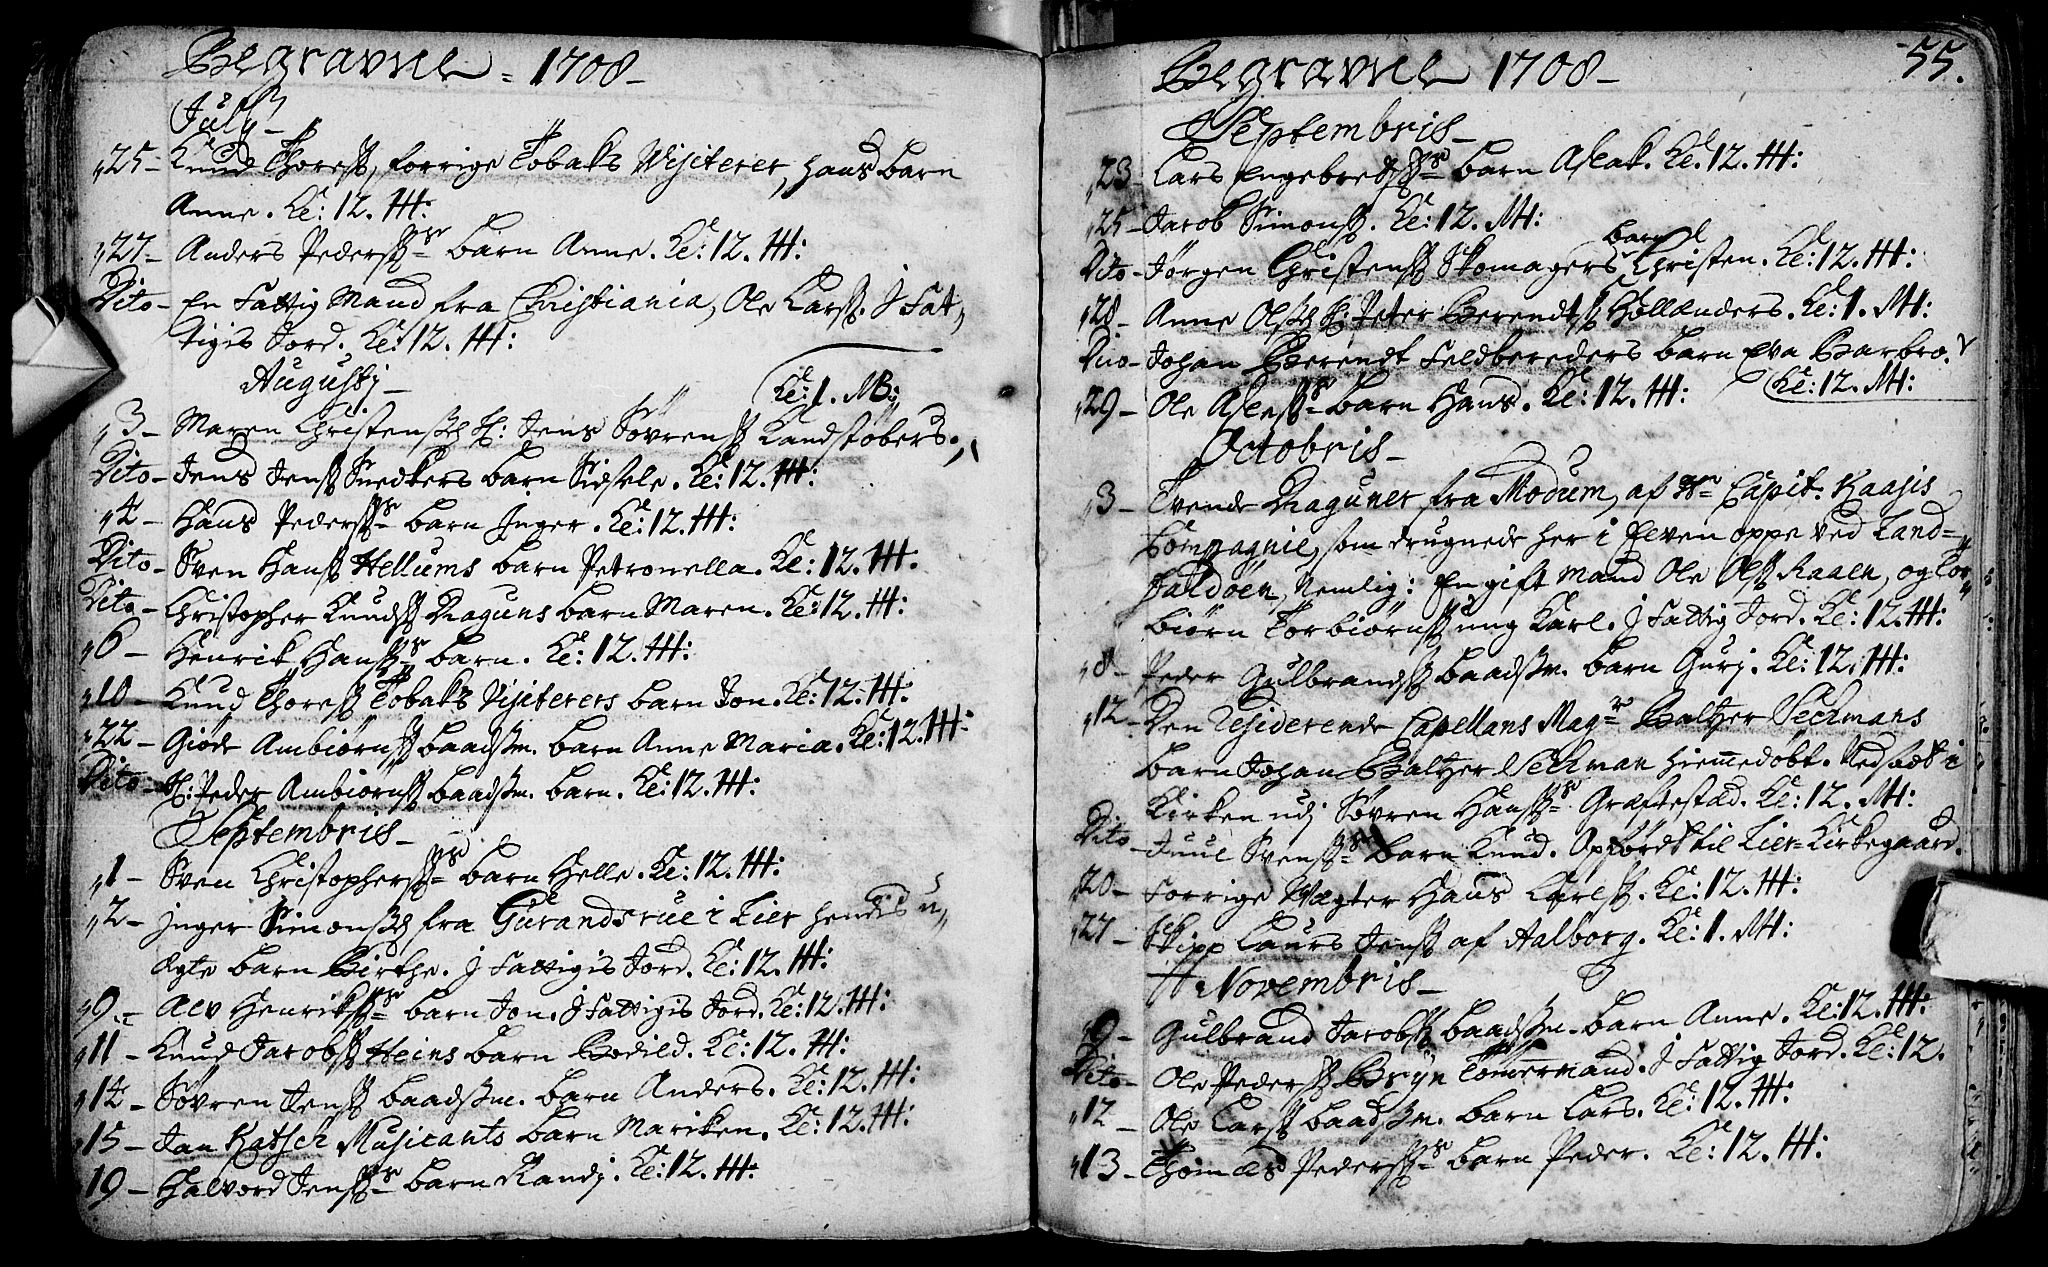 Begravne = 1708 –
July –
25 – Knud Thoreß, forrige Tobaks Visiterer, hans barn
Anne. Kl: 12. H:
27 – Anders Pederßøns barn Anne. Kl: 12. H:
Dito – En Fattig Mand fra Christiania, Ole Larß. J Fat-
tigis Jord. Kl: 12. H:
Augustj –
Kl: 1. MB:
3 – Maren Christensß S: Jens Søvrenß Kandstøbers.
Dito – Jens Jenß Snedkers barn Sidsele. Kl: 12. H:
4 – Hans Pederßøns barn Inger. Kl: 12. H:
Dito – Sven Hanß Hellums barn Petronella. Kl: 12. H:
Dito – Christopher Knudß Draguns barn Maren. Kl: 12. H:
6 – Henrik Hanßøns barn. Kl: 12. H:
10 – Knud Thoreß Tobaks Visiterers barn Jon. Kl: 12. H:
22 – Giøde Ambiørnß baadßm. barn Anne Maria. Kl: 12. H:
Dito – S: Peder Ambiørnß baadßm. barn. Kl: 12. H:
Septembris –
1 – Sven Christopherßøns barn Helle. Kl: 12. H:
2 – Inger Simonsß fra Gilhus i Lier hendis u-
ægte barn Birthe. J Fattigis Jord. Kl: 12. H:
9 – Alv Henrikßøns barn Jon. J Fattigis Jord. Kl: 12. H:
11 – Knud Jacobß Heins barn Bodild. Kl: 12. H:
14 – Søvren Jenß baadßm. barn Anders. Kl: 12. H:
15 – Jan Katsch Musicants barn Mariken. Kl: 12. H:
19 – Halvord Jenßøns barn Randj. Kl: 12. H:
55.
Begravne 1708 –
Septembris –
23 – Lars Engebredßøns barn Aslak. Kl: 12. H:
25 – Jacob Simonß. Kl: 12. M:
barn
Dito – Jørgen Christenß Skomagers Christen. Kl: 12. H:
28 – Anne Olsß S: Peter Berendtß Hollænders. Kl: 1. M:
Dito – Johan Berendt Feldbereders barn Eva Barbro.
Kl: 12. M:
29 – Ole Asleßøns barn Hans. Kl: 12. H:
Octobris –
3 – Tvende Draguner fra Modum, af Hr Capit. Kaasis
Compagnie, som drugnede her i Elven oppe ved Land-
faldøen, Nemlig: En gift mand Ole Olß Raaen, og Tor-
biørn Torbiørnß ung Karl. J Fattig Jord. Kl: 12. H:
8 – Peder Gulbrandß baadßm. barn Gurj. Kl: 12. H:
12 – Den Residerende Capellans Magr Baltzer Sechmans
barn Johan Baltzer Sechman hiemmedøbt. Nedsat i
Kirken udj Søvren Hanßøns Græftestæd. Kl: 12. M:
Dito – Juul Svenßøns barn Knud. Opførdt til Lier-Kirkegaard.
20 – Forrige Vægter Hans Carlß. Kl: 12. H:
27 – Skipp Laurs Jenß af Aalborg. Kl: 1. M:
Novembris –
9 – Gulbrand Jacobß baadßm. barn Anne. Kl: 12. H:
Dito – Ole Pederß Bryn Tømermand. J Fattig Jord. Kl: 12.
12 – Ole Larß baadßm. barn Lars. Kl: 12. H:
13 – Thomas Pederßøns barn Peder. Kl: 12. H: